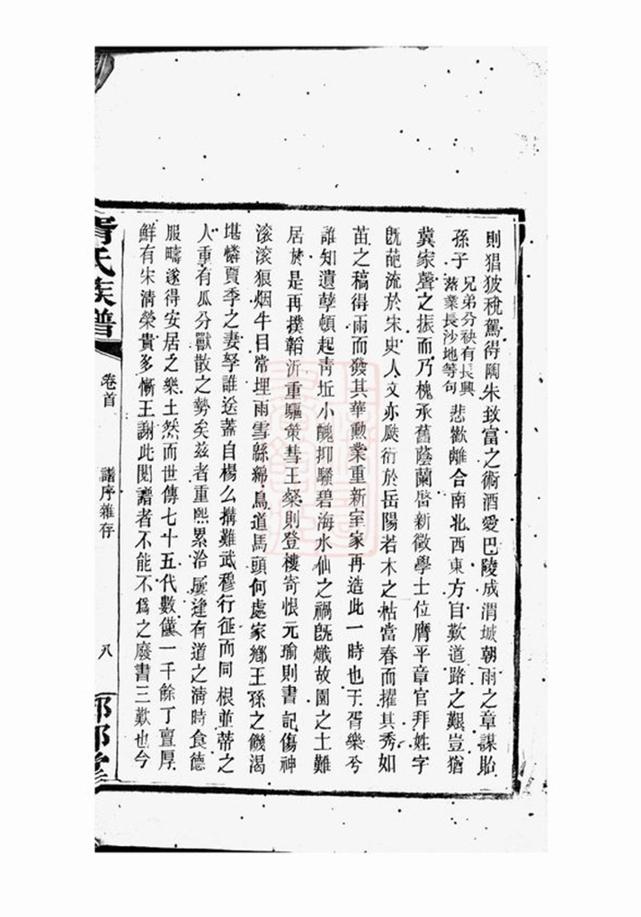 則猖披稅駕得陶朱致富之術酒愛巴陵成渭城朝雨之章謀貽
孫子
兄弟分袂有長興
落業長沙地等句
悲歡離合南北西東方自歎道路之艱豈猶
冀家聲之振而乃槐承舊蔭蘭啓新徵學士位膺平章官拜姓字
旣葩流於宋史人文亦颷衍於岳陽若木之枯當春而擢其秀如
苗之槁得雨而發其華勳業重新室家再造此一時也于胥樂兮
誰知遺孽頓起靑坵小醜抑騷碧海水仙之禍旣熾故園之土難
居於是再撲韜沂重驅策彗王粲則登樓寄恨元瑜則書記傷神
滚滚狼烟牛目常埋雨雪縣綿鳥道馬頭何處家鄉王孫之餓渴
堪憐賈季之妻孥誰送蓋自楊么搆難武穆行征而同根並蒂之
人重有瓜分獸散之勢矣茲者重熙累洽屢逢有道之淸時食德
服疇遂得安居之樂土然而世傳七十五代數僅一千餘丁亶厚
鮮有朱淸榮貴多慚王謝此閱譜者不能不爲之廢書三歎也今
胥氏族譜
卷首
譜序雜存
八